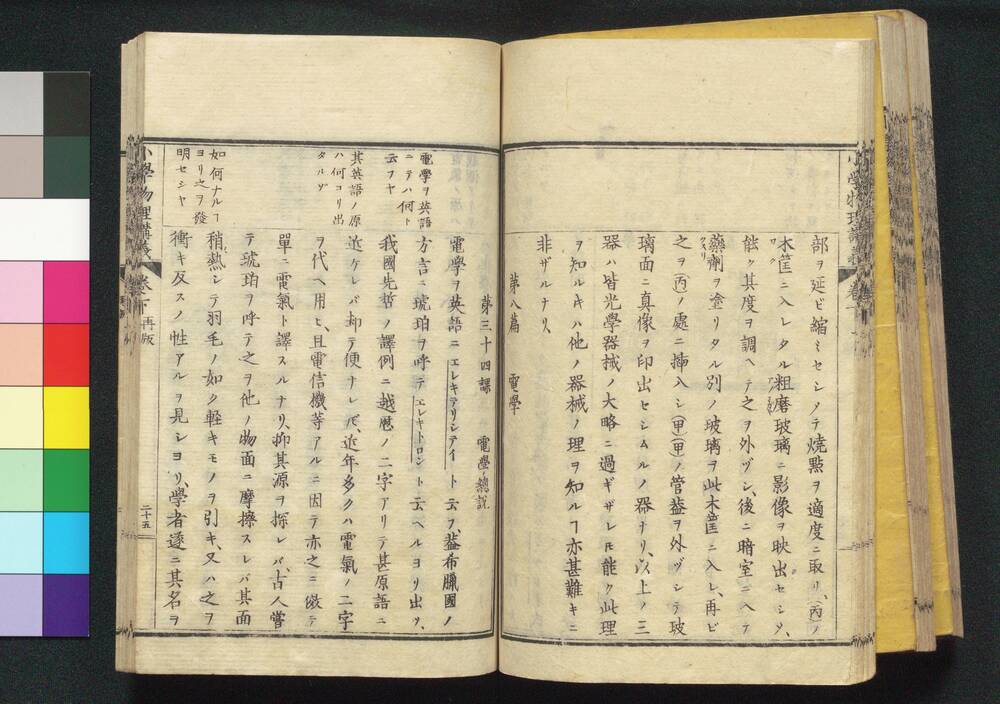 部ヲ延ビ縮ミセシメテ燒點ヲ適度ニ取リ、(丙)ノ
木筐ニ入レタル粗磨玻璃ニ影像ヲ映出セシメ、
能ク其度ヲ調ヘテ之ヲ外ヅシ、後ニ暗室ニヘテ
藥劑ヲ塗リタル別ノ玻璃ヲ此木筐ニ入レ、再ビ
之ヲ(丙)ノ處ニ挿入シ(甲)(甲)ノ管葢ヲ外ヅシテ玻
璃面ニ真像ヲ印出セシムルノ器ナリ、以上ノ三
器ハ皆光學器械ノ大略ニ過ギザレ𪜈能ク此理
ヲ知ルキハ他ノ器械ノ理ヲ知ルヿ亦甚難キニ
非ザルナリ、
第八篇 電學
第三十四課 電學ノ總説
電學ヲ英語ニエレキテリシテイト云フ、葢希臘國ノ
方言ニ琥珀ヲ呼テエレキトロント云ヘルヨリ出ヅ、
我國先哲ノ譯例ニ越歴ノ二字アリテ甚原語ニ
近ケレバ却テ便ナレ𪜈、近年多クハ電氣ノ二字
ヲ代ヘ用ヒ、且電信機等アルニ因テ亦之ニ倣テ
單ニ電氣ト譯スルナリ、抑其源ヲ探レバ、古人嘗
テ琥珀ヲ呼テ之ヲ他ノ物面ニ摩擦スレバ其面
稍熱シテ羽毛ノ如ク輕キモノヲ引キ、又ハ之ヲ
衝キ反スノ性アルヲ見シヨリ、學者遂ニ其名ヲ
電學ヲ英語
ニテハ何ト
云フヤ
其英語ノ原
ハ何ヨリ出
タルゾ
如何ナルヿ
ヨリ之ヲ發
明セシヤ
小學物理講義
卷下
再版
二十五